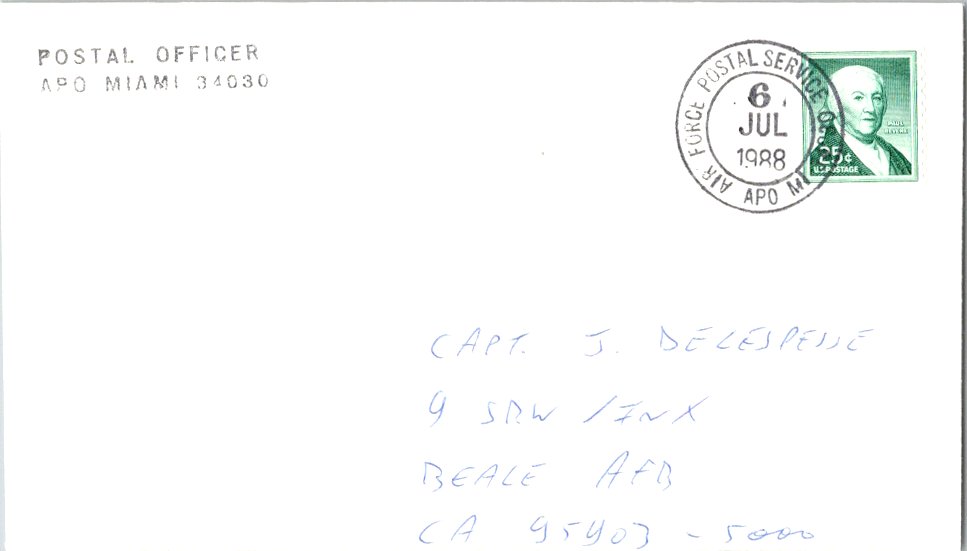 POSTAL OFFICER
APO MIAMI 34030
AIR FORCE POSTAL SERVICE
6
JUL
1988
APO MI
PAUL
REVERE
25¢
U.S. POSTAGE
CAPT. J. DELESPESSE
9 SRW / INX
BEALE AFB
CA 95903-5000